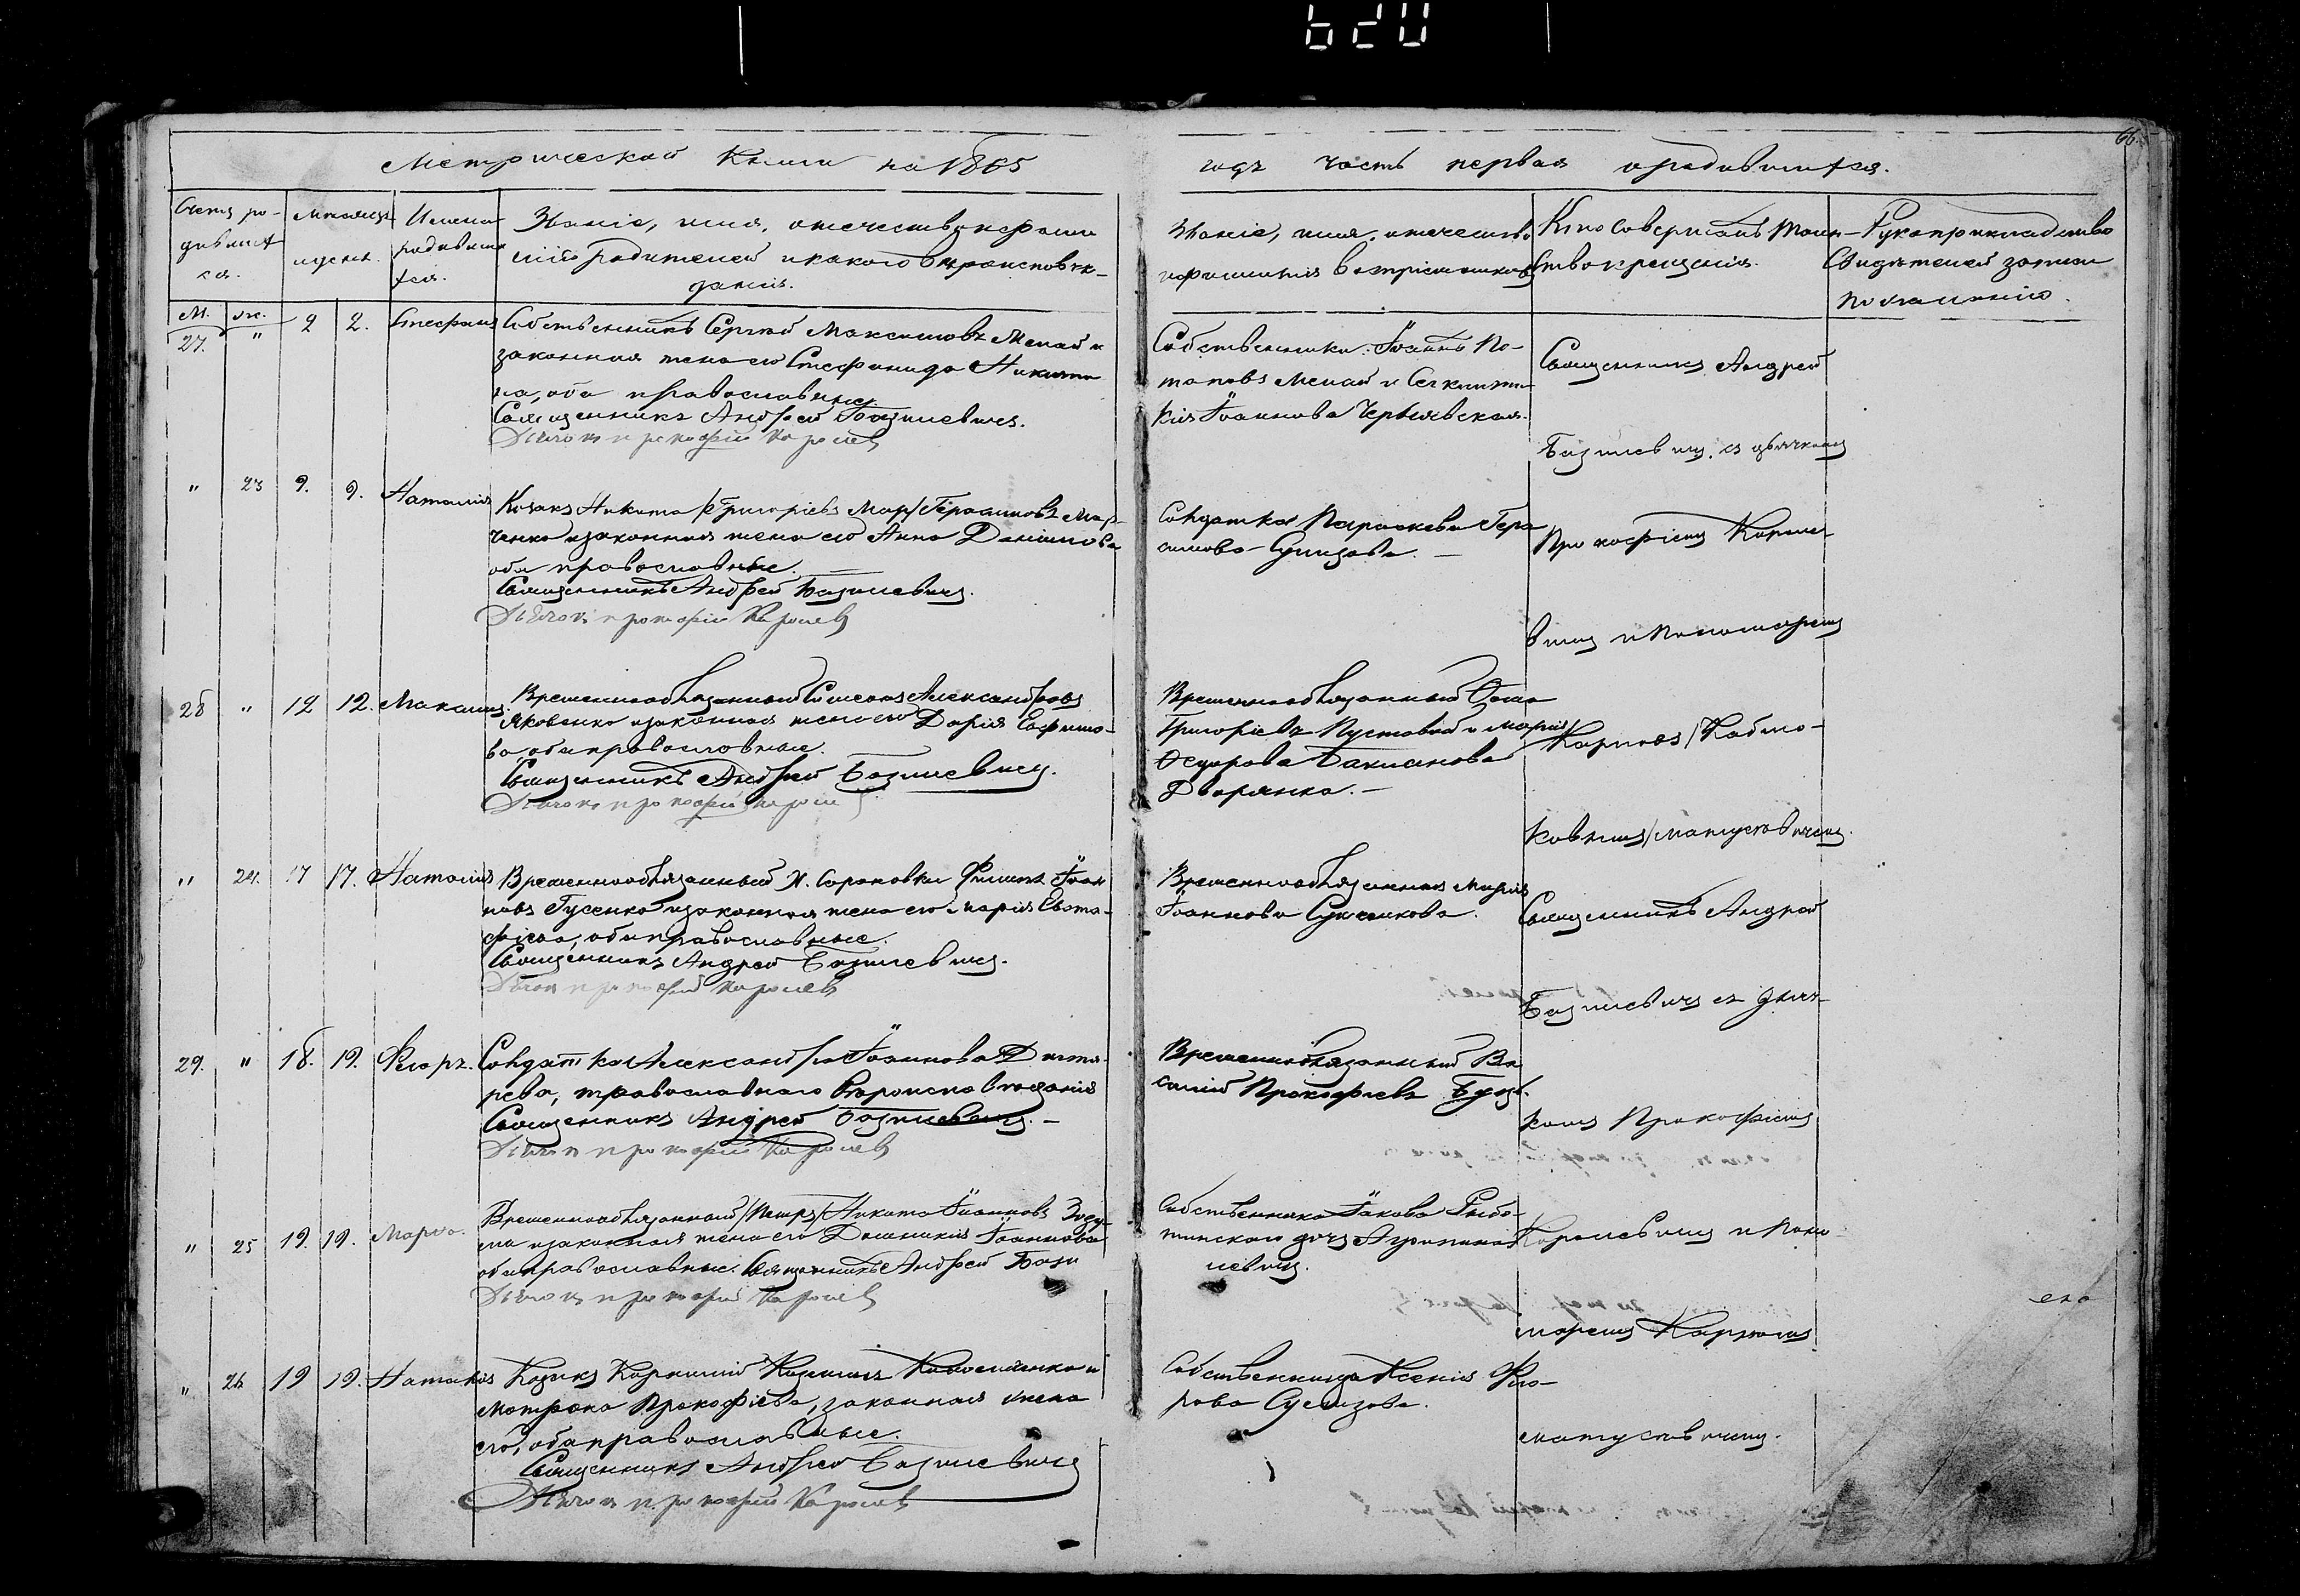 620
66
Метрической Книги на 1865
годъ часть первая о родившихся.
Счетъ ро-
дивших
ся.
М. ж.
Мѣсяцъ
и день.
Имена
родивших
ся.
Званіе, имя, отечество и фами
лія родителей и какого вѣроисповѣ-
данія.
Званіе, имя, отечество
и фамилія воспріемниковъ
Кто совершалъ таин-
ство крещенія.
Рукоприкладство
свидѣтелей записи
по желанію.
27. " 2 2. Стефанъ
Собственникъ Сергѣй Максимовъ и
законная жена его Стефанида Никити
на, оба православные
Священникъ Андрей Базилевичъ.
Дьячокъ Прокофій Королев
Собственники: Іоаннъ По-
таповъ и
Іоаннова Чернявская.
Священникъ Андрей
Базилевичъ съ дьячкомъ
" 23 9. 9. Наталія
Козакъ Никита /Григоріевъ Мар/ Герасимовъ Мар-
ченко и законная жена его Анна Даніилова
оба православные.
Священникъ Андрей Базилевичъ.
Дьячокъ Прокофій Королев
Солдатка Параскева Гера
симова
Прокофіемъ Короле-
вымъ и Пономаремъ
28 " 12 12. Максимъ.
Временнообязанный Симеонъ Александровъ
Яковенко и законная жена его Дарія
ва, оба православные.
Священникъ Андрей Базилевичъ.
Дьячокъ Прокофій Королев
Временнообязанный Ѳома
Григоріевъ Пустовой и Марія
Ѳедорова
Дворянка.
Карпомъ
Матусовичемъ.
" 24. 17 17. Наталія
Временнообязанный Х. Сороковки Филипъ Іоан
новъ Гусенко и законная жена его Марія Евста-
фіева, оба православные.
Священникъ Андрей Базилевичъ.
Дьячокъ Прокофій Королев
Временнообязанная Марія
Іоаннова
Священникъ Андрей
Базилевичъ съ дьяч-
29. " 18. 19. Флоръ.
Солдатка Александра Іоаннова
рева, православнаго вѣроисповѣданія
Священникъ Андрей Базилевичъ.
Дьячокъ Прокофій Королев
Временнообязанный Ва
силій Прокофіевъ
комъ Прокофіемъ
" 25 19. 19. Марѳа.
Временнообязанный /Петръ/ Никита Іоанновъ
и законная жена его Домникія Іоаннова
оба православные. Священникъ Андрей Бази
левичъ.
Дьячокъ Прокофій Королев
Собственника Іакова
дочь
Королевымъ и Поно
маремъ Карпомъ
" 26 19 19. Наталія
Козакъ Корнилій и
Матрона Прокофіева, законная жена
его, оба православные.
Священникъ Андрей Базилевичъ
Дьячокъ Прокофій Королев
Собственница Ксенія Фло-
рова
Матусовичемъ.